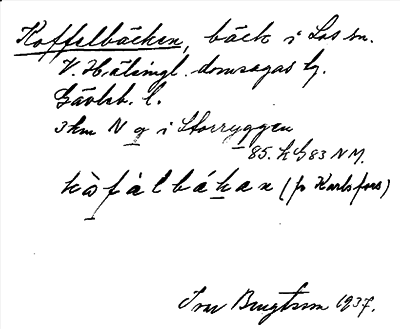 Koffelbäcken, bäck i Los sn.
V. Hälsingl. domsagas tg.
Gävleb. l.
3 km N g i Storryggen
85. h G 83 N M.
kòfálbákan (fr Karlsfors)
Ivar Bengtsson 1937.